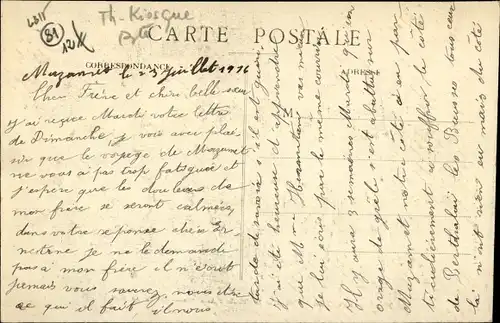 4811
81
12/X
Th-Kiosque
CARTE POSTALE
CORRESPONDANCE
ADRESSE
Mazamet le 25 Juillet 1916
Cher Frère et chère belle sœur
J'ai reçue Mardi votre lettre
de Dimanche, je vois avec plai-
sir que le voyage de Mazamet
ne vous a pas trop fatiguée et
j'espère que les douleurs de
mon frère se seront calmées,
dans votre réponse chère Er-
nestine je ne le demande
pas à mon frère il n'écrit
jamais vous saurez nous dire
ce que il fait il nous
tarde de savoir s'il est guéri,
j'ai été heureuse d'apprendre
que M. vas mieux
je lui écris par le même courrier
Il y aura 3 semaines Mardi qu'un
orage de grêle s'est abattu sur
Mazamet et notre côté a eu par-
ticulièrement a souffrir le côté
de tous ceux
la n'ont rien eu